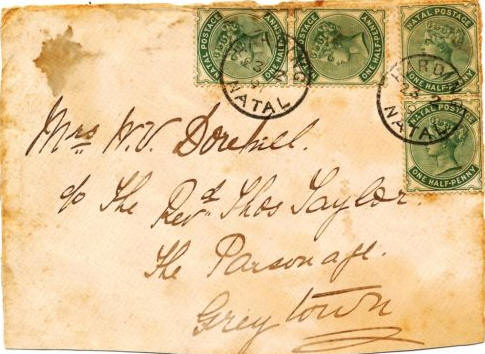 NATAL POSTAGE
ONE HALF-PENNY
NATAL POSTAGE
ONE HALF-PENNY
NATAL POSTAGE
ONE HALF-PENNY
NATAL POSTAGE
ONE HALF-PENNY
NATAL
NATAL
Mrs W. V. Dorehill.
c/o The Revd Thos Taylor.
The Parsonage.
Greytown